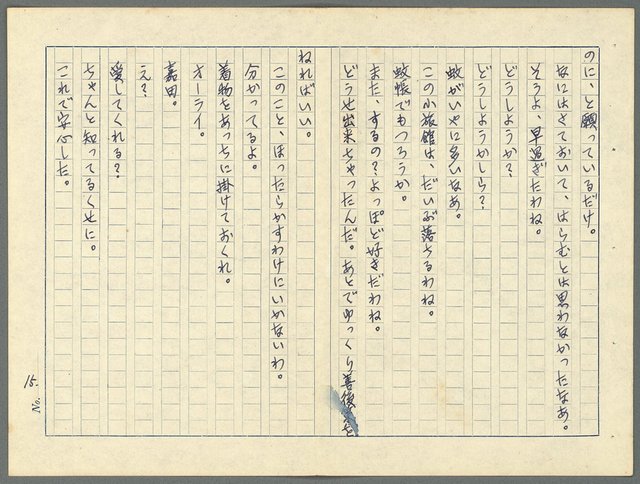 のに、と願っているだけ。
なにはさておいて、はらむとは思わなかったなあ。
そうよ、早過ぎたわね。
どうしようか？
どうしようかしら？
蚊がいやに多いなあ。
この小旅館は、だいぶ落ちるわね。
蚊帳でもつろうか。
また、するの？よっぽど好きだわね。
どうせ出来ちゃったんだ。あとでゆっくり善後策を
ねればいい。
このこと、ほったらかすわけにいかないわ。
分かってるよ。
着物をあっちに掛けておくれ。
オーライ。
嘉田。
え？
愛してくれる？
ちゃんと知ってるくせに。
これで安心した。
No. 15.